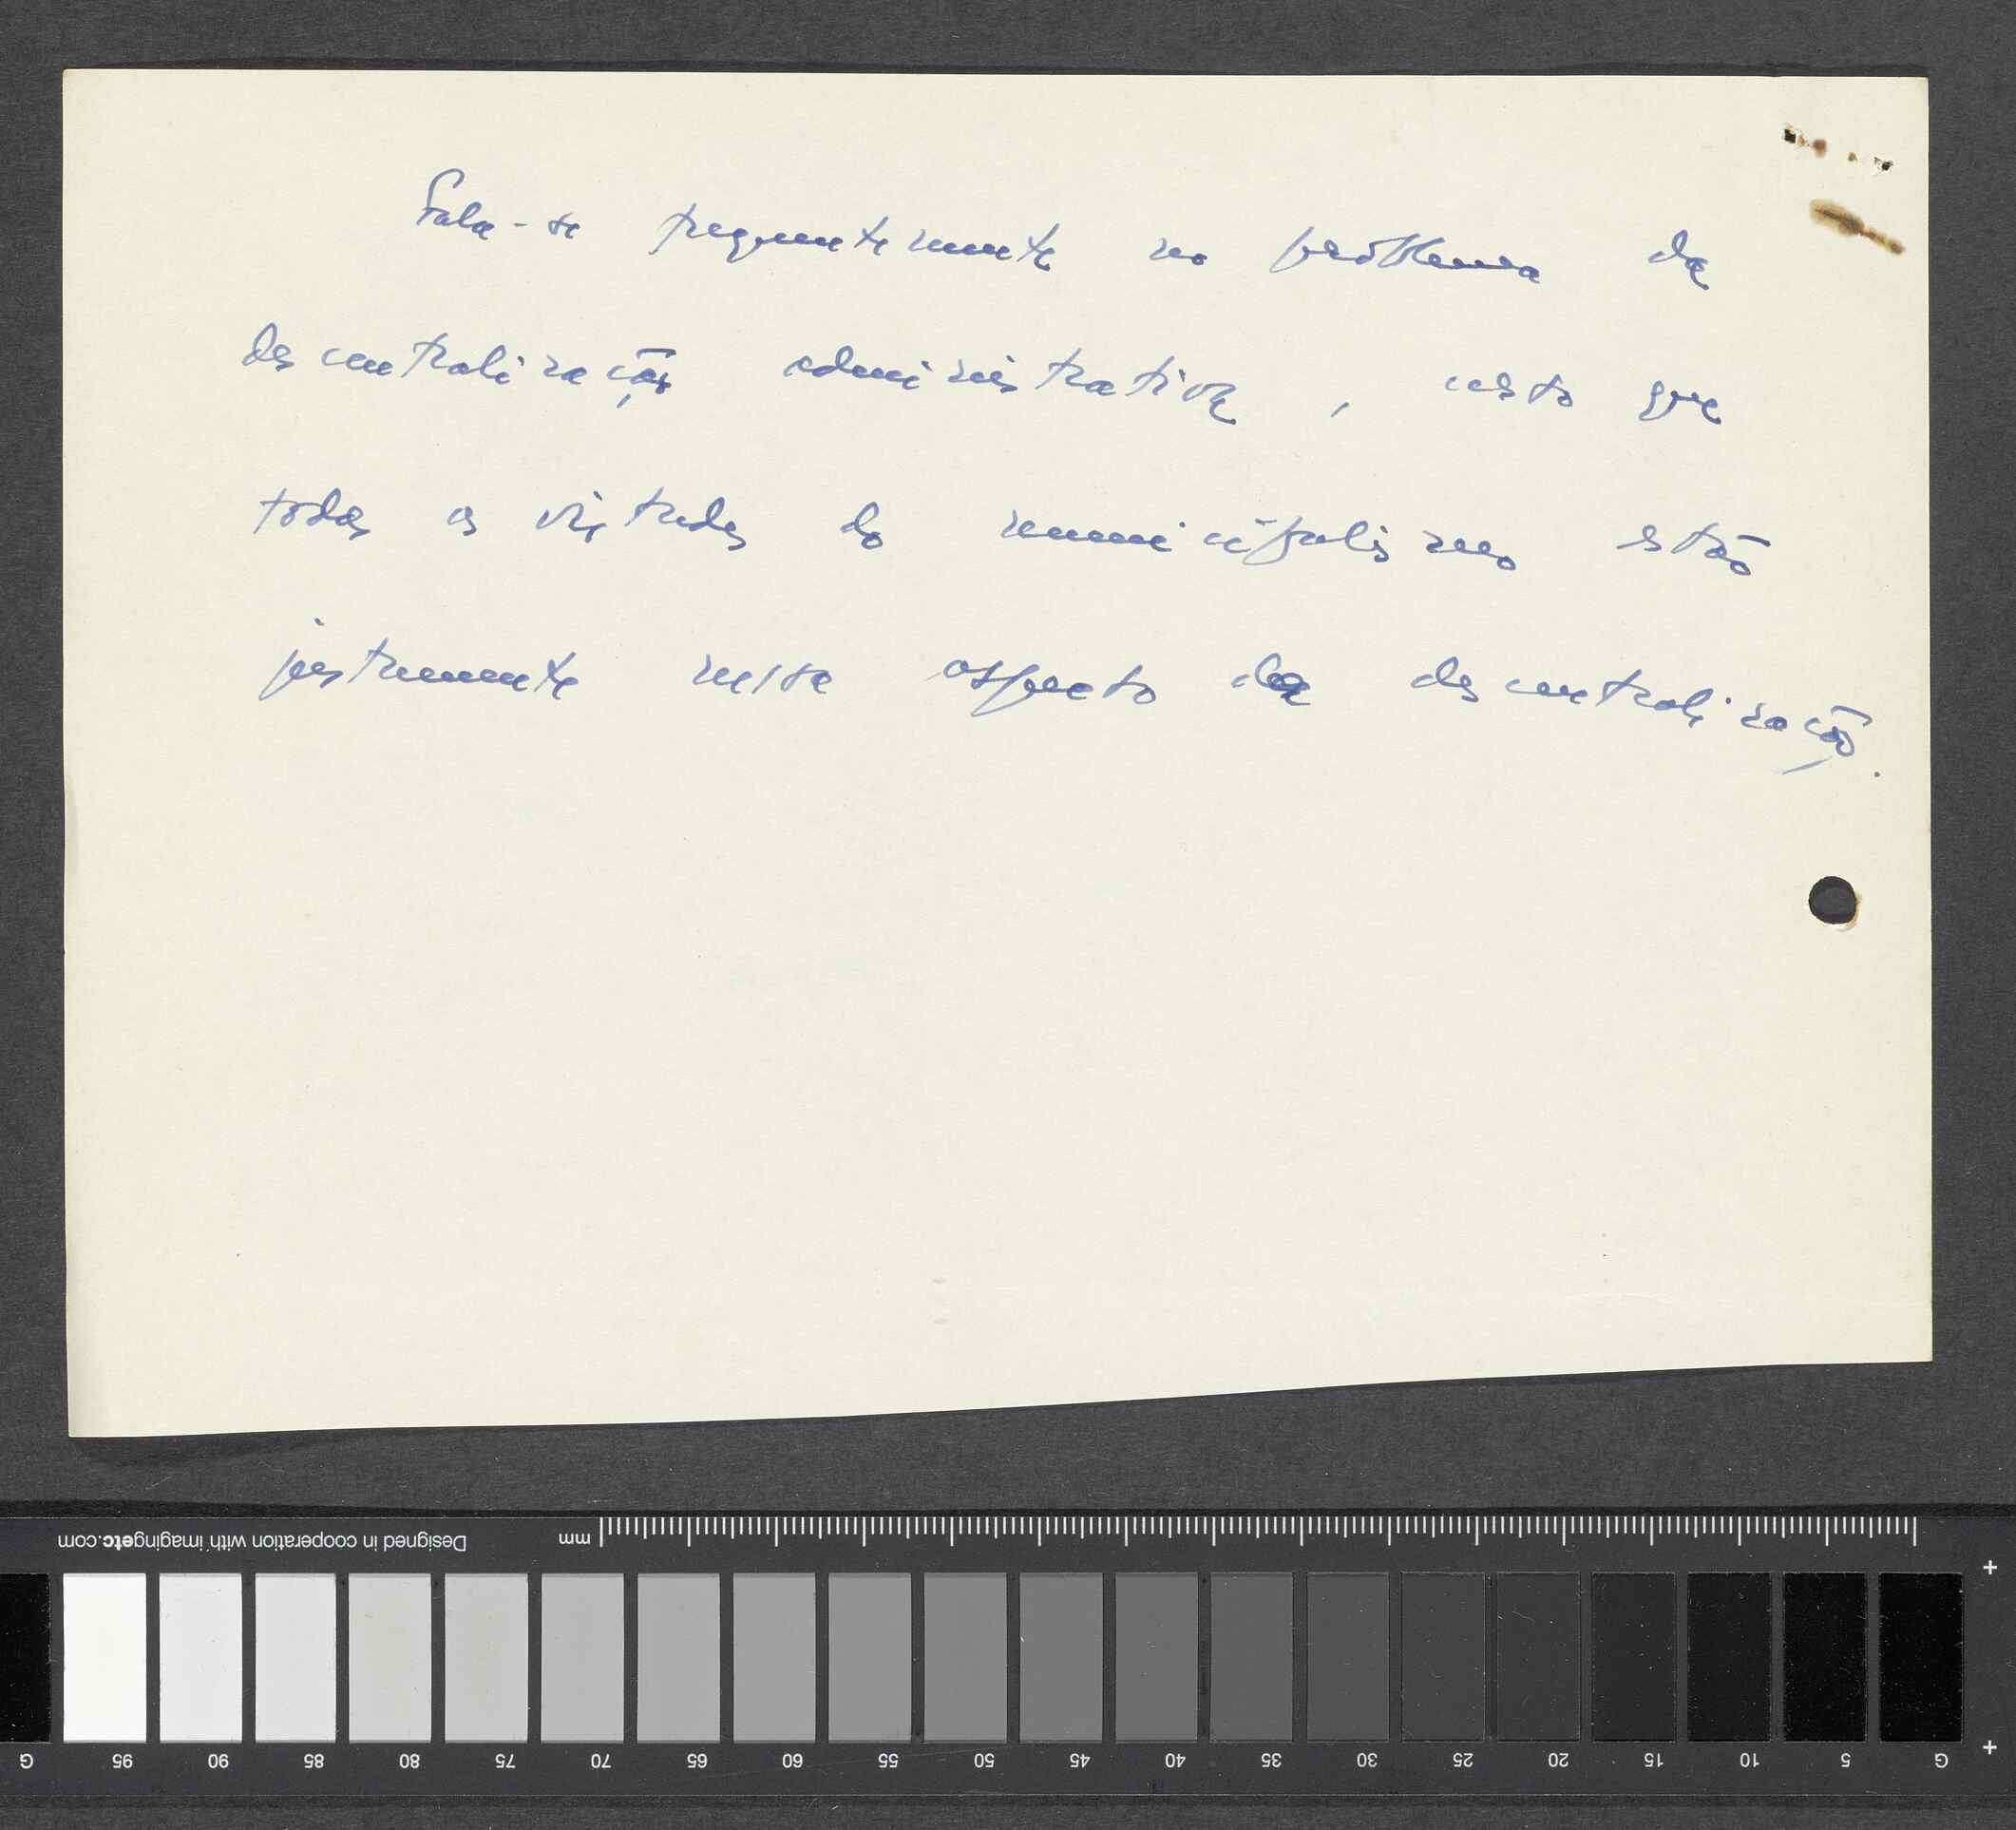 Fala-se frequentemente no problema da
descentralização administrativa, certo que
todas as virtudes do municipalismo estão
justamente nesse aspecto da descentralização.
Designed in cooperation with imagingetc.com mm
G 95 90 85 80 75 70 65 60 55 50 45 40 35 30 25 20 15 10 5 G